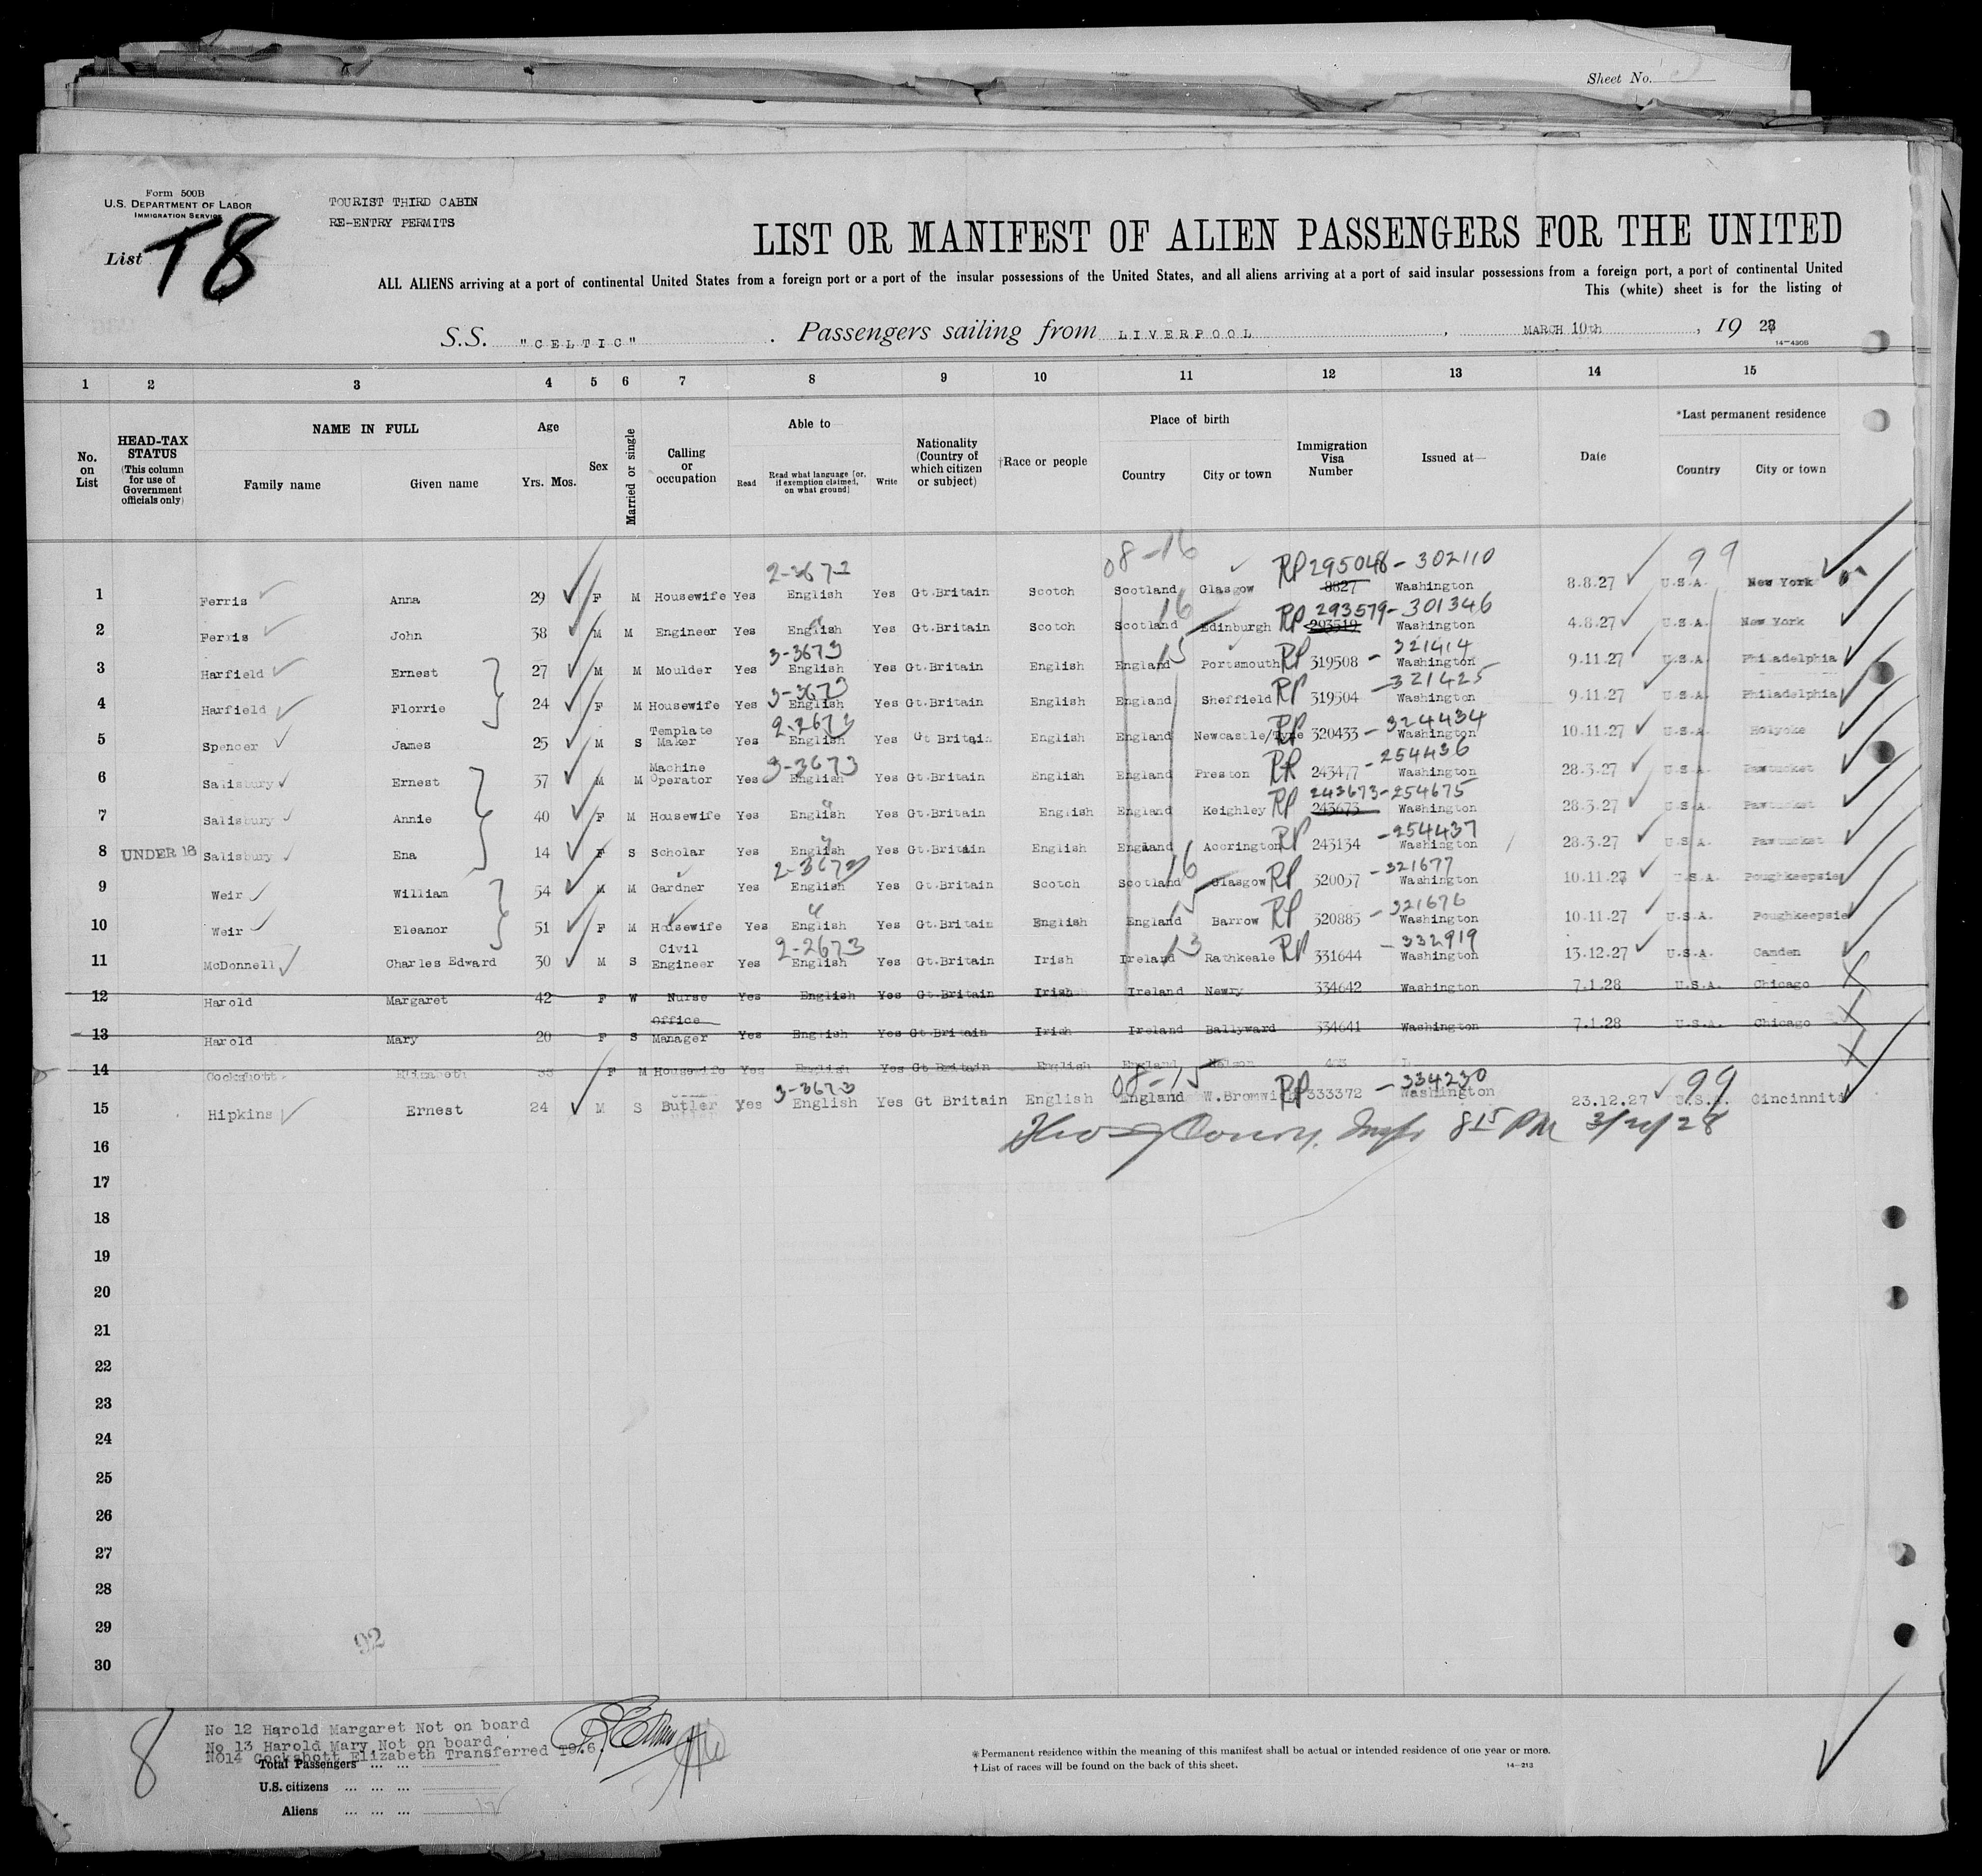 Sheet No.
Form 500B
U.S. DEPARTMENT OF LABOR
IMMIGRATION SERVICE
TOURIST THIRD CABIN
RE-ENTRY PERMITS
List T8
LIST OR MANIFEST OF ALIEN PASSENGERS FOR THE UNITED
ALL ALIENS arriving at a port of continental United States from a foreign port or a port of the insular possessions of the United States, and all aliens arriving at a port of said insular possessions from a foreign port, a port of continental United
This (white) sheet is for the listing of
S.S. "CELTIC" . Passengers sailing from LIVERPOOL , MARCH 10th , 19 28
14-430B
1 2 3 4 5 6 7 8 9 10 11 12 13 14 15
No. on List
HEAD-TAX STATUS (This column for use of Government officials only)
NAME IN FULL
Family name Given name
Age
Yrs. Mos.
Sex
Married or single
Calling or occupation
Able to
Read Read what language [or, if exemption claimed, on what ground] Write
Nationality (Country of which citizen or subject)
†Race or people
Place of birth
Country City or town
Immigration Visa Number
Issued at—
Date
*Last permanent residence
Country City or town
2-367-2 08-16 RP 295048 - 302110 99
1 Ferris Anna 29 F M Housewife Yes English Yes Gt.Britain Scotch Scotland Glasgow 8827 Washington 8.8.27 U.S.A. New York
16 RP 293579 - 301346
2 Ferris John 38 M M Engineer Yes English Yes Gt.Britain Scotch Scotland Edinburgh 293519 Washington 4.8.27 U.S.A. New York
3-3673 15 321414
3 Harfield Ernest 27 M M Moulder Yes English Yes Gt.Britain English England Portsmouth RP 319508 - Washington 9.11.27 U.S.A. Philadelphia
3-3673 321425
4 Harfield Florrie 24 F M Housewife Yes English Yes Gt.Britain English England Sheffield RP 319504 - Washington 9.11.27 U.S.A. Philadelphia
2-2673 324434
5 Spencer James 25 M S Template Maker Yes English Yes Gt Britain English England Newcastle/Tyne RP 320433 - Washington 10.11.27 U.S.A. Holyoke
3-3673 254436
6 Salisbury Ernest 37 M M Machine Operator Yes English Yes Gt.Britain English England Preston RP 243477 - Washington 28.3.27 U.S.A. Pawtucket
243673 - 254675
7 Salisbury Annie 40 F M Housewife Yes English Yes Gt.Britain English England Keighley RP 243673 Washington 28.3.27 U.S.A. Pawtucket
254437
8 UNDER 16 Salisbury Ena 14 F S Scholar Yes English Yes Gt.Britain English England Accrington RP 243134 - Washington 28.3.27 U.S.A. Pawtucket
2-3673 16 321677
9 Weir William 54 M M Gardner Yes English Yes Gt.Britain Scotch Scotland Glasgow RP 320037 - Washington 10.11.27 U.S.A. Poughkeepsie
15 321676
10 Weir Eleanor 51 F M Housewife Yes English Yes Gt.Britain English England Barrow RP 320883 - Washington 10.11.27 U.S.A. Poughkeepsie
2-2673 13 332919
11 McDonnell Charles Edward 30 M S Civil Engineer Yes English Yes Gt.Britain Irish Ireland Rathkeale RP 331644 - Washington 13.12.27 U.S.A. Camden
12 Harold Margaret 42 F W Nurse Yes English Yes Gt.Britain Irish Ireland Newry 334642 Washington 7.1.28 U.S.A. Chicago
13 Harold Mary 20 F S Office Manager Yes English Yes Gt.Britain Irish Ireland Ballyward 334641 Washington 7.1.28 U.S.A. Chicago
14 Cockshott Elizabeth 33 F M Housewife Yes English Yes Gt Britain English England Nelson
3-3673 08-15 334230 99
15 Hipkins Ernest 24 M S Butler Yes English Yes Gt Britain English England W.Bromwich RP 333372 - Washington 23.12.27 U.S.A. Cincinnati
8 15 PM 3/20/28
16
17
18
19
20
21
22
23
24
25
26
27
28
29
30
92
8
No 12 Harold Margaret Not on board
No 13 Harold Mary Not on board
No14 Cockshott Elizabeth Transferred T9.6.
Total Passengers ... ...
U.S. citizens ... ... ...
Aliens ... ... ...
* Permanent residence within the meaning of this manifest shall be actual or intended residence of one year or more.
† List of races will be found on the back of this sheet.
14-213